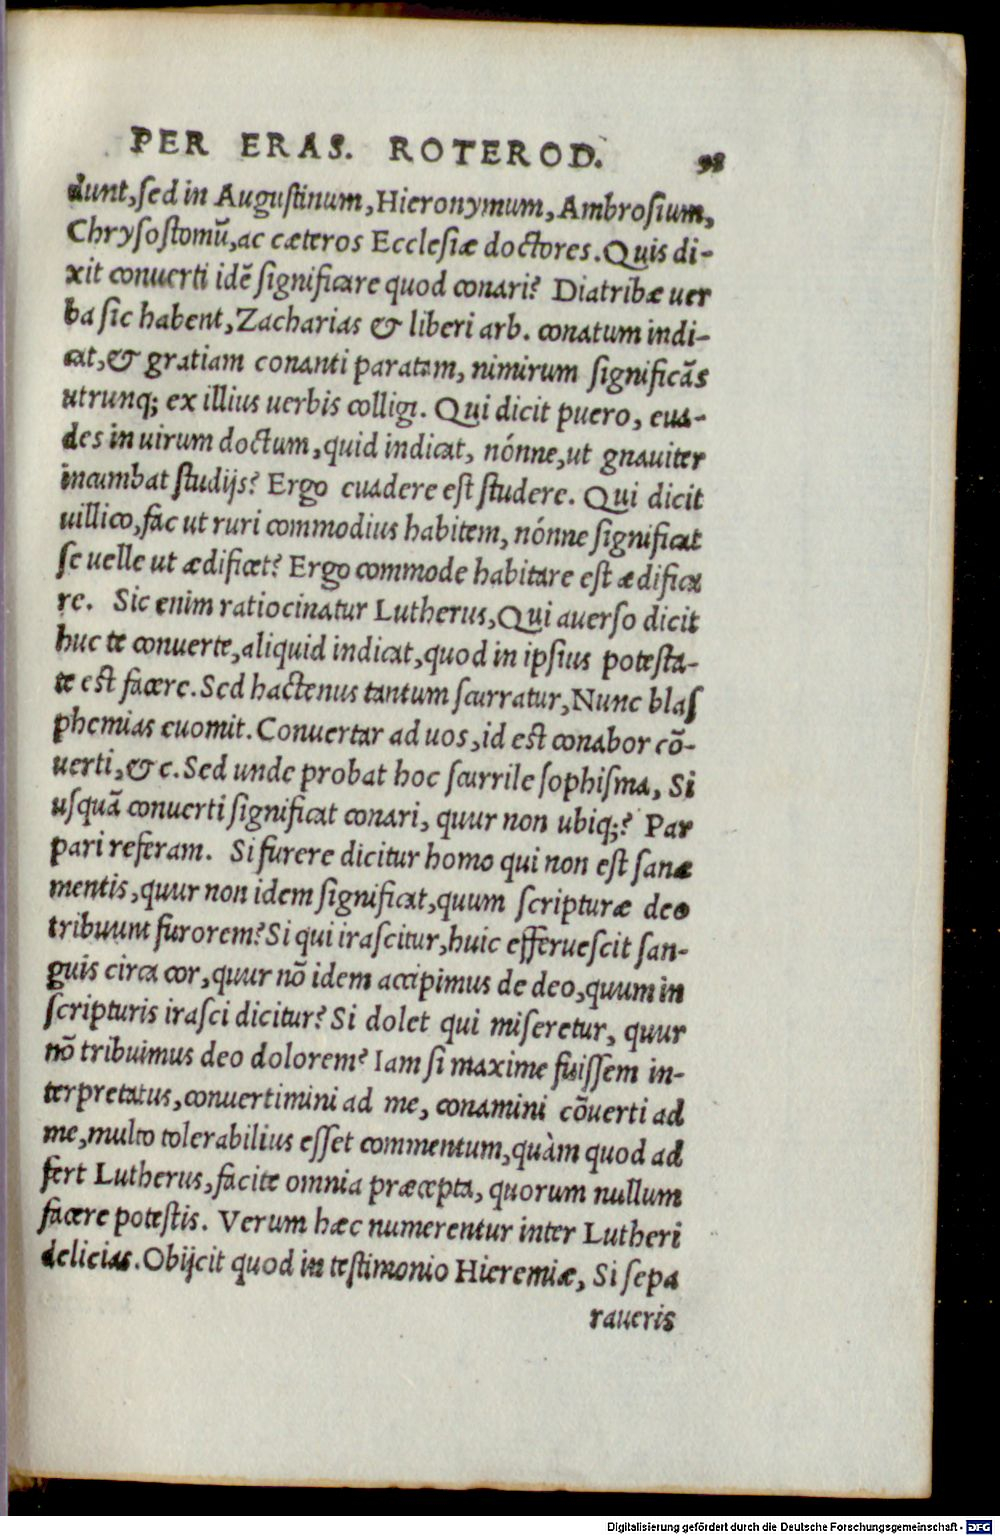 PER ERAS. ROTEROD. 98
dunt, sed in Augustinum, Hieronymum, Ambrosium,
Chrysostomū, ac cæteros Ecclesiæ doctores. Quis di-
xit conuerti idē significare quod conari? Diatribæ uer
ba sic habent, Zacharias & liberi arb. conatum indi-
cat, & gratiam conanti paratam, nimirum significās
utrunq; ex illius uerbis colligi. Qui dicit puero, eua-
des in uirum doctum, quid indicat, nónne, ut gnauiter
incumbat studijs? Ergo euadere est studere. Qui dicit
uillico, fac ut ruri commodius habitem, nónne significat
se uelle ut ædificet? Ergo commode habitare est ædifica
re. Sic enim ratiocinatur Lutherus, Qui auerso dicit
huc te conuerte, aliquid indicat, quod in ipsius potesta-
te est facere. Sed hactenus tantum scurratur, Nunc blas
phemias euomit. Conuertar ad uos, id est conabor cō-
uerti, &c. Sed unde probat hoc scurrile sophisma, Si
usquā conuerti significat conari, quur non ubiq;? Par
pari referam. Si furere dicitur homo qui non est sanæ
mentis, quur non idem significat, quum scripturæ deo
tribuunt furorem? Si qui irascitur, huic efferuescit san-
guis circa cor, quur nō idem accipimus de deo, quum in
scripturis irasci dicitur? Si dolet qui miseretur, quur
nō tribuimus deo dolorem? Iam si maxime fuissem in-
terpretatus, conuertimini ad me, conamini cōuerti ad
me, multo tolerabilius esset commentum, quàm quod ad
fert Lutherus, facite omnia præcepta, quorum nullum
facere potestis. Verum hæc numerentur inter Lutheri
delicias. Obijcit quod in testimonio Hieremiæ, Si sepa
raueris
Digitalisierung gefördert durch die Deutsche Forschungsgemeinschaft - DFG